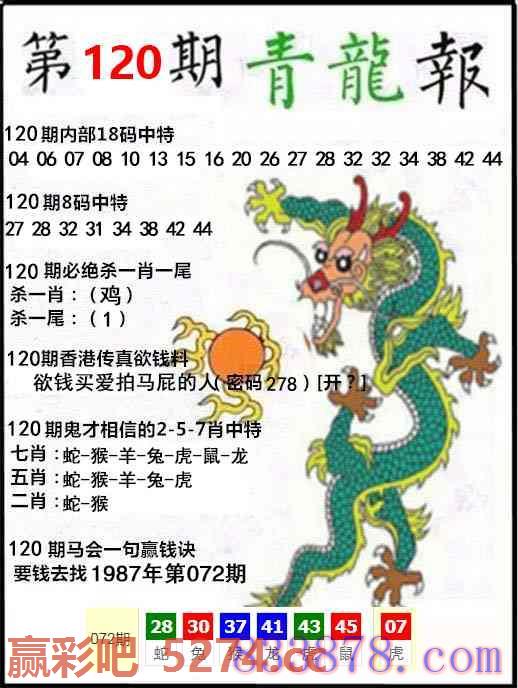 第120期 青龍報
120期内部18码中特
04 06 07 08 10 13 15 16 20 26 27 28 32 32 34 38 42 44
120期8码中特
27 28 32 31 34 38 42 44
120期必绝杀一肖一尾
杀一肖：（鸡）
杀一尾：（1）
120期香港传真欲钱料
欲钱买爱拍马屁的人（密码278）[开？]
120期鬼才相信的2-5-7肖中特
七肖：蛇-猴-羊-兔-虎-鼠-龙
五肖：蛇-猴-羊-兔-虎
二肖：蛇-猴
120期马会一句赢钱诀
要钱去找1987年第072期
072期 28 30 37 41 43 45 07
蛇 兔 猴 龙 虎 鼠 虎
赢彩吧 5274.cc
3878.com